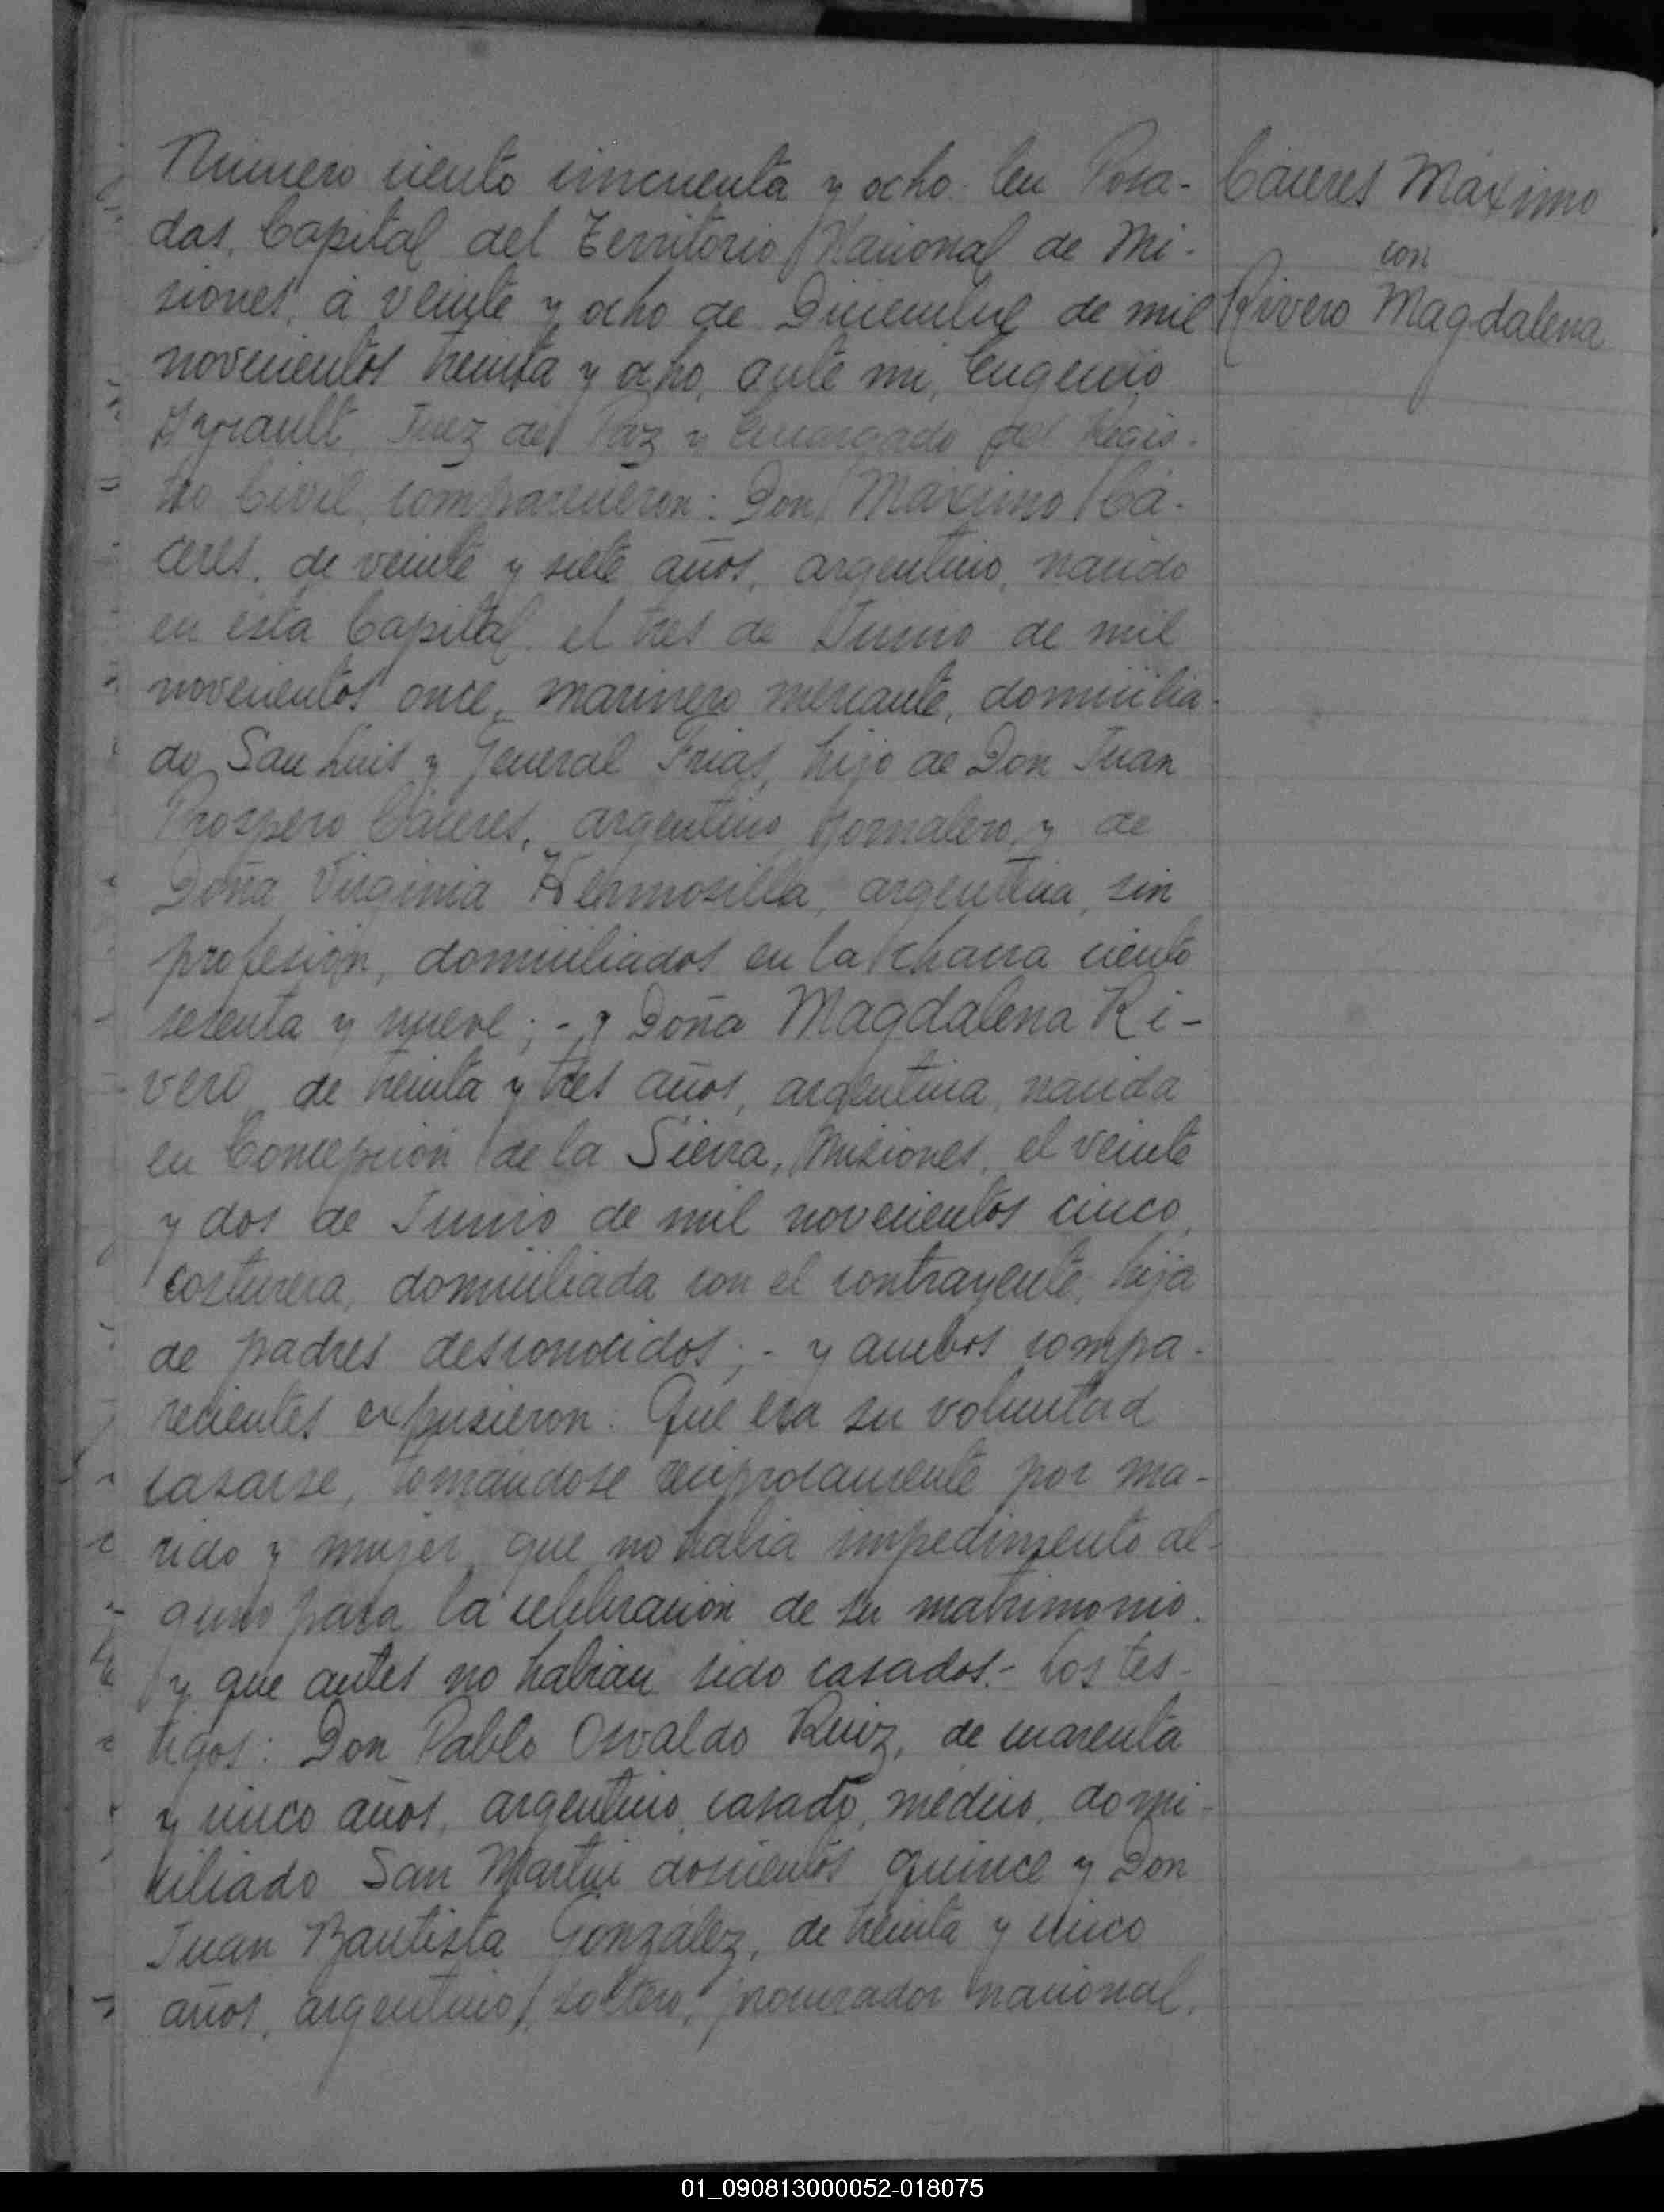 Número ciento cincuenta y ocho. En Posa-
das, Capital del Territorio Nacional de Mi-
siones, á veinte y ocho de Diciembre de mil
novecientos treinta y ocho, ante mi, Eugenio
Ayrault, Juez de Paz y Encargado del Regis-
tro Civil, comparecieron: Don Máximo Cá-
ceres, de veinte y siete años, argentino, nacido
en esta Capital el tres de Junio de mil
novecientos once, marinero mercante, domicilia-
do San Luis y General Frias, hijo de Don Juan
Prospero Cáceres, argentino, jornalero, y de
Doña Virginia Hermosilla, argentina, sin
profesión, domiciliados en la chacra ciento
sesenta y nueve; - y Doña Magdalena Ri-
vero, de treinta y tres años, argentina, nacida
en Concepción de la Sierra, Misiones, el veinte
y dos de Junio de mil novecientos cinco,
costurera, domiciliada con el contrayente, hija
de padres desconocidos; - y ambos compa-
recientes expusieron: Que era su voluntad
casarse, tomándose reciprocamente por ma-
rido y mujer, que no había impedimento al-
guno para la celebración de su matrimonio.
y que antes no habían sido casados.- Los tes-
tigos: Don Pablo Osvaldo Ruiz, de cuarenta
y cinco años, argentino, casado, médico, domi-
ciliado San Martín doscientos quince y Don
Juan Bautista González, de treinta y cinco
años, argentino, soltero, procurador nacional,
Cáceres Máximo
con
Rivero Magdalena
01_090813000052-018075